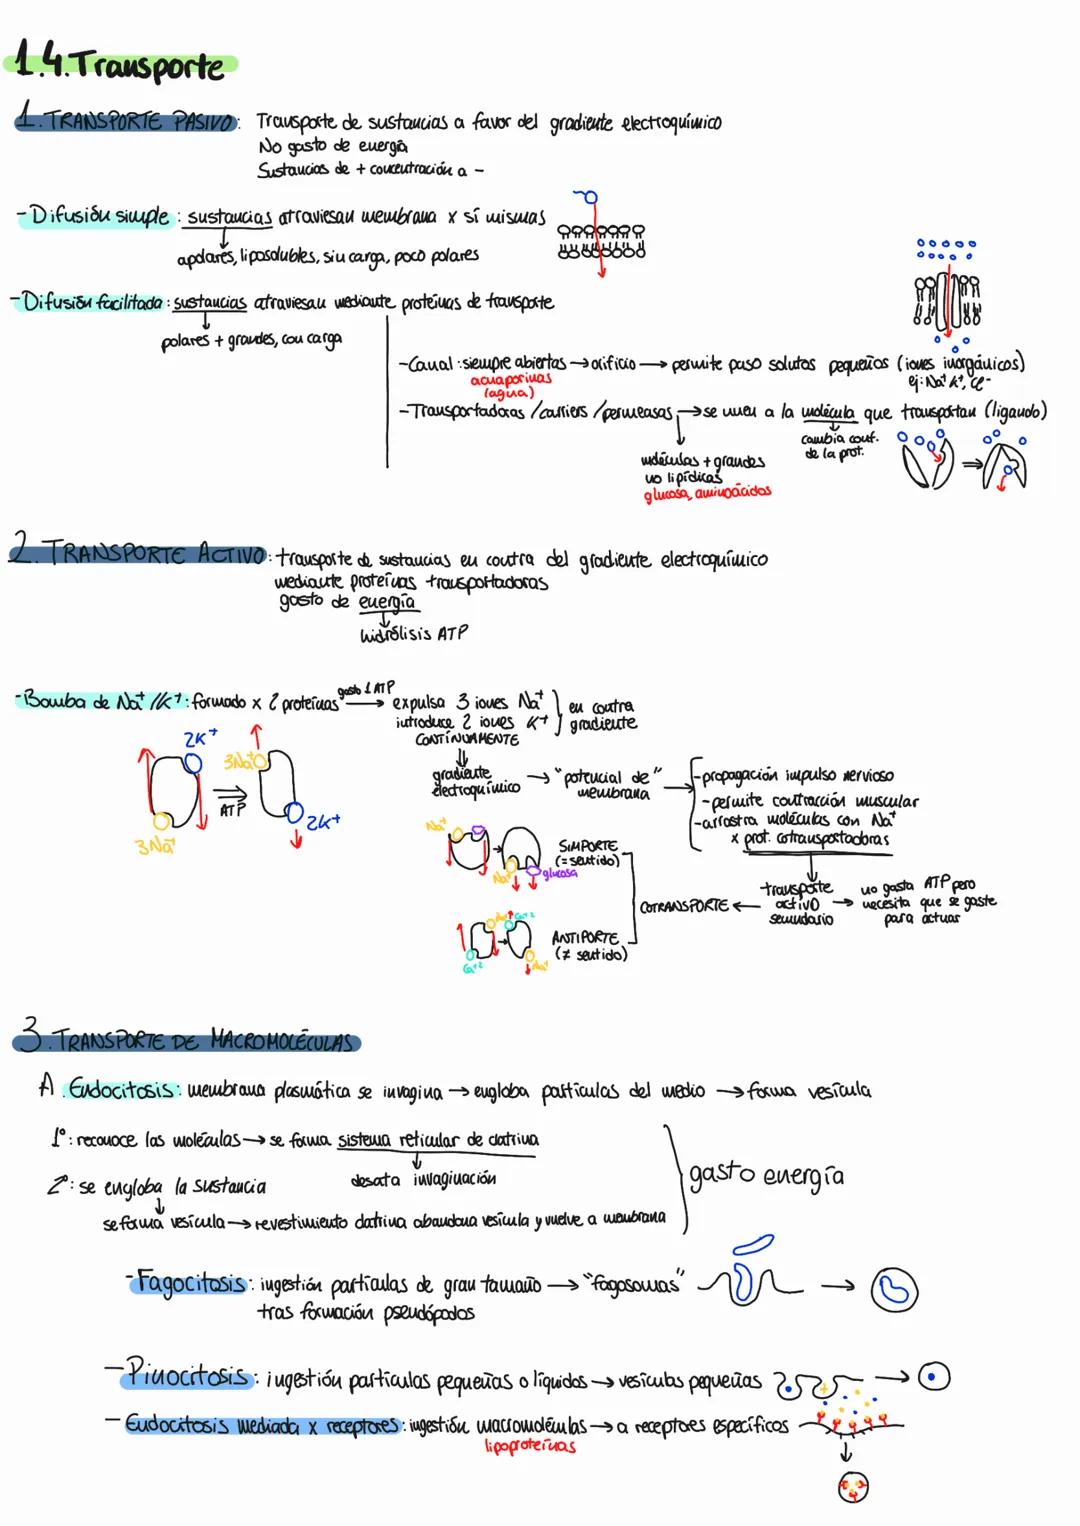 1.4. Transporte
1. TRANSPORTE PASIVO: Transporte de sustancias a favor del gradiente electroquímico
No gasto de energía
Sustancias de + concentración a -
- Difusión simple: sustancias atraviesan membrana x sí mismas
apolares, liposolubles, sin carga, poco polares
- Difusión facilitada: sustancias atraviesan mediante proteínas de transporte
polares + grandes, con carga
- Canal: siempre abiertas → orificio → permite paso solutos pequeños (iones inorgánicos)
acuaporinas
(agua)
ej: Na⁺ K⁺, Cl⁻
- Transportadoras / carriers / permeasas → se unen a la molécula que transportan (ligando)
cambia conf.
de la prot.
moléculas + grandes
no lipídicas
glucosa, aminoácidos
2. TRANSPORTE ACTIVO: transporte de sustancias en contra del gradiente electroquímico
mediante proteínas transportadoras
gasto de energía
hidrólisis ATP
- Bomba de Na⁺/K⁺: formado x 2 proteínas gasto 1 ATP → expulsa 3 iones Na⁺
introduce 2 iones K⁺
en contra
gradiente
CONTÍNUAMENTE
2K⁺
3Na⁺
ATP
3Na⁺
2K⁺
gradiente
electroquímico → "potencial de
membrana"
- propagación impulso nervioso
- permite contracción muscular
- arrastra moléculas con Na⁺
x prot. cotransportadoras
Na⁺
Na⁺
glucosa
SIMPORTE
(= sentido)
COTRANSPORTE ← transporte
activo
secundario → no gasta ATP pero
necesita que se gaste
para actuar
Na⁺
Ca⁺²
Ca⁺²
Na⁺
ANTIPORTE
(≠ sentido)
3. TRANSPORTE DE MACROMOLÉCULAS
A. Endocitosis: membrana plasmática se invagina → engloba partículas del medio → forma vesícula
1º: reconoce las moléculas → se forma sistema reticular de clatrina
desata invaginación
2º: se engloba la sustancia
se forma vesícula → revestimiento clatrina abandona vesícula y vuelve a membrana
gasto energía
- Fagocitosis: ingestión partículas de gran tamaño → "fagosomas"
tras formación pseudópodos
- Pinocitosis: ingestión partículas pequeñas o líquidos → vesículas pequeñas
- Endocitosis mediada x receptores: ingestión macromoléculas → a receptores específicos
lipoproteínas